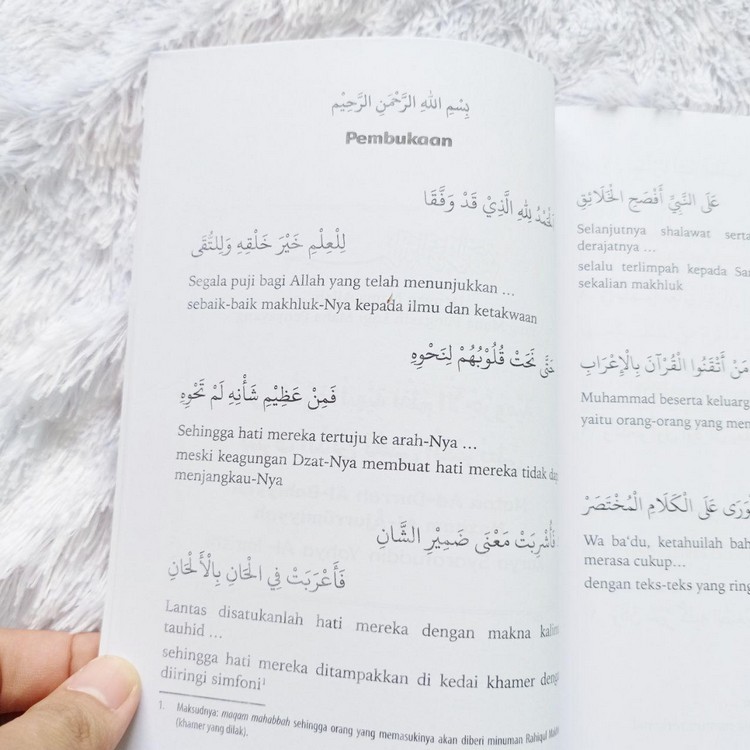 بِسْمِ اللهِ الرَّحْمَنِ الرَّحِيْمِ
Pembukaan
لْحَمْدُ لِلّٰهِ الَّذِيْ قَدْ وَفَّقَا
لِلْعِلْمِ خَيْرَ خَلْقِهِ وَلِلتُّقَى
Segala puji bagi Allah yang telah menunjukkan ...
sebaik-baik makhluk-Nya kepada ilmu dan ketakwaan
حَتَّى نَحَتْ قُلُوْبُهُمْ لِنَحْوِهِ
فَمِنْ عَظِيْمِ شَأْنِهِ لَمْ تَحْوِهِ
Sehingga hati mereka tertuju ke arah-Nya ...
meski keagungan Dzat-Nya membuat hati mereka tidak
menjangkau-Nya
فَأُشْرِبَتْ مَعْنَى ضَمِيْرِ الشَّانِ
فَأَعْرَبَتْ فِي الْحَانِ بِالْأَلْحَانِ
Lantas disatukanlah hati mereka dengan makna
tauhid ...
sehingga hati mereka ditampakkan di kedai khamer
diiringi simfoni¹
1. Maksudnya: maqam mahabbah sehingga orang yang memasukinya akan diberi minuman Rahiqul
(khamer yang dilak).
عَلَى النَّبِيِّ أَفْصَحِ الْخَلَائِقِ
Selanjutnya shalawat serta
derajatnya ...
selalu terlimpah kepada
sekalian makhluk
مَنْ أَتْقَنُوا الْقُرْآنَ بِالْإِعْرَابِ
Muhammad beserta
yaitu orang-orang yang
عَلَى الْكَلَامِ الْمُخْتَصَرْ
Wa ba'du, ketahuilah
merasa cukup...
dengan teks-teks yang